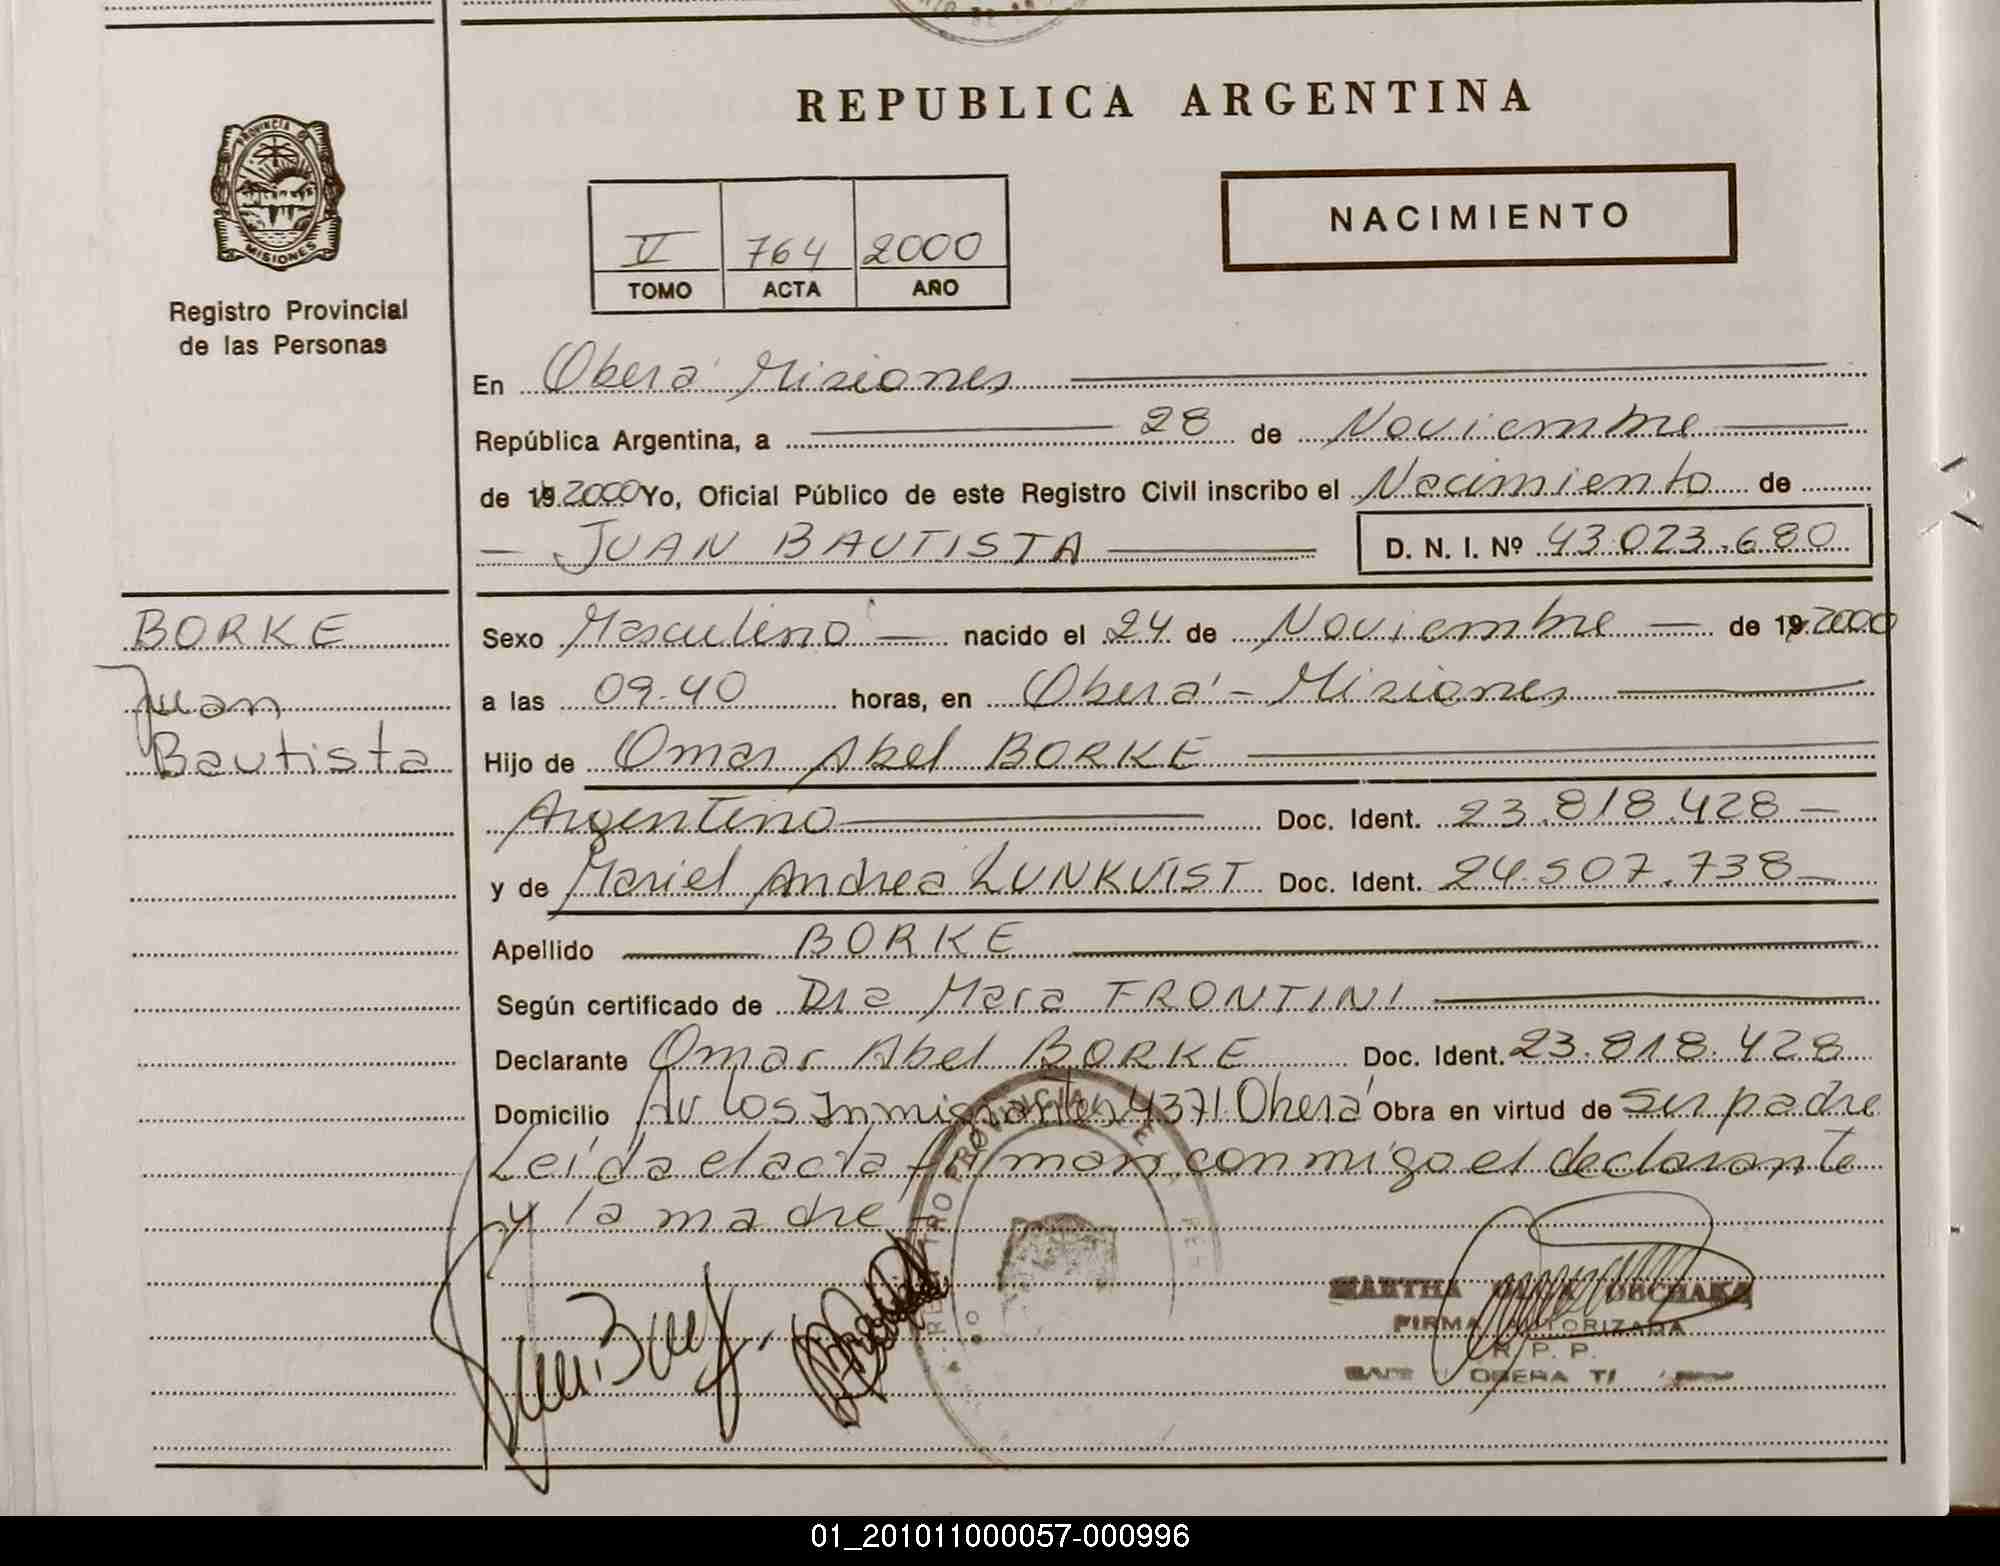 REPUBLICA ARGENTINA
PROVINCIA DE
MISIONES
Registro Provincial
de las Personas
V 764 2000
TOMO ACTA AÑO
NACIMIENTO
En Oberá Misiones
República Argentina, a 28 de Noviembre
de 19 2000 Yo, Oficial Público de este Registro Civil inscribo el Nacimiento de
JUAN BAUTISTA D. N. I. Nº 43.023.680
BORKE
Juan
Bautista
Sexo Masculino nacido el 24 de Noviembre de 19 2000
a las 09.40 horas, en Oberá - Misiones
Hijo de Omar Abel BORKE
Argentino Doc. Ident. 23.818.428
y de Mariel Andrea LUNKVIST Doc. Ident. 24.507.738
Apellido BORKE
Según certificado de Dra Mara FRONTINI
Declarante Omar Abel BORKE Doc. Ident. 23.818.428
Domicilio Av Los Inmigrantes 4371 Oberá Obra en virtud de ser padre
Leída el acta firman conmigo el declarante
y la madre
PROVINCIAL DE
MARTHA OLGA
FIRMA AUTORIZADA
R. P. P.
OBERA
01_201011000057-000996